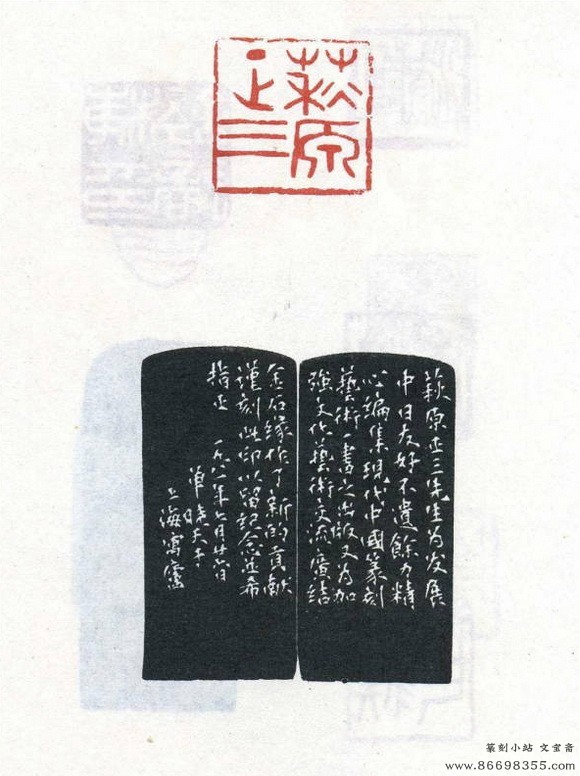 萩原
正三
萩原正三先生为发展
中日友好不遺餘力精
心编集現代中國篆刻
藝術一書之出版又为加
強文化藝術交流廣结
金石缘作了新的貢献
谨刻此印以留記念並希
指正 一九八 年六月廿六日
单晓天于
上海寓廬
篆刻小站 文宝斋
www.86698355.com